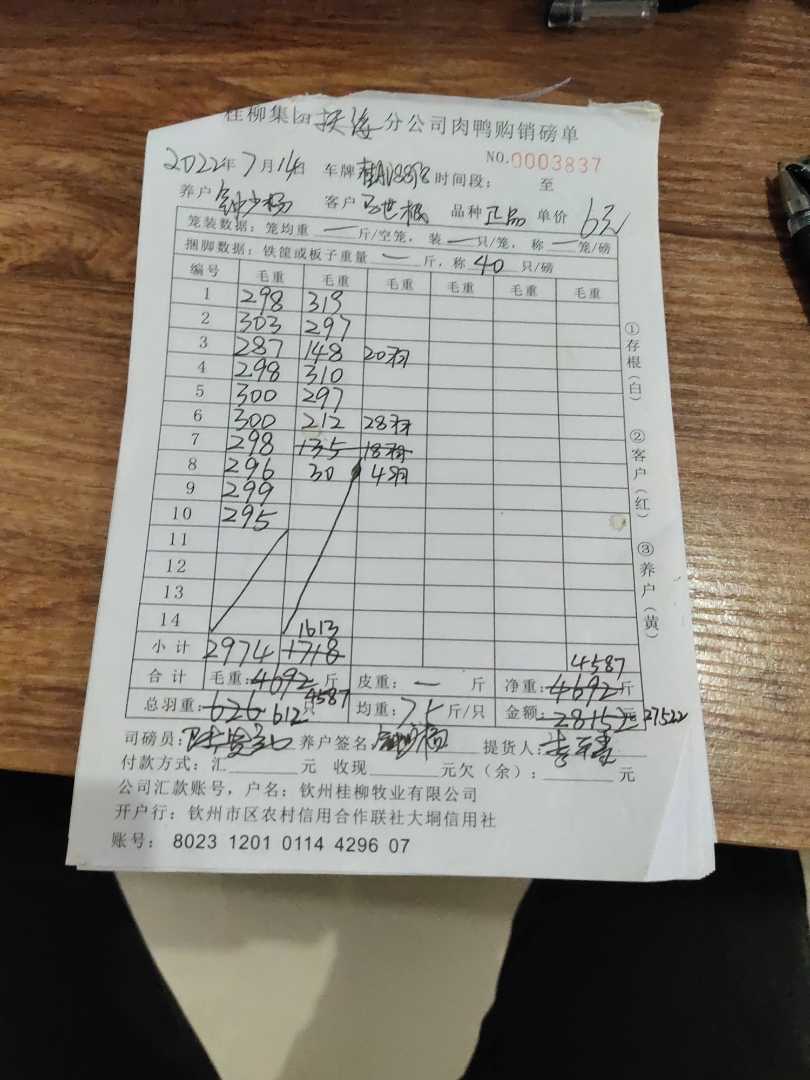 桂柳集团扶海分公司肉鸭购销磅单
NO.0003837
2022年7月14日 车牌 时间段： 至
养户 客户 马世根 品种 正品 单价 6元
笼装数据：笼均重 一 斤/空笼，装 一 只/笼，称 一 笼/磅
捆脚数据：铁筐或板子重量 一 斤，称 40 只/磅
编号 毛重 毛重 毛重 毛重 毛重 毛重
1 298 319
2 303 297
3 287 148 20羽
4 298 310
5 300 297
6 300 212 28羽
7 298 135 18羽
8 296 30 4羽
9 299
10 295
11
12
13
14
1613
小计 2974 1718
4587
合计 毛重：4692斤 皮重：一 斤 净重：4692斤
4587
总羽重：626 612只 均重： 斤/只 金额：28152元 27522
司磅员： 养户签名 提货人：
付款方式：汇 元 收现 元欠（余）： 元
公司汇款账号，户名：钦州桂柳牧业有限公司
开户行：钦州市区农村信用合作联社大垌信用社
账号： 8023 1201 0114 4296 07
①存根（白）
②客户（红）
③养户（黄）